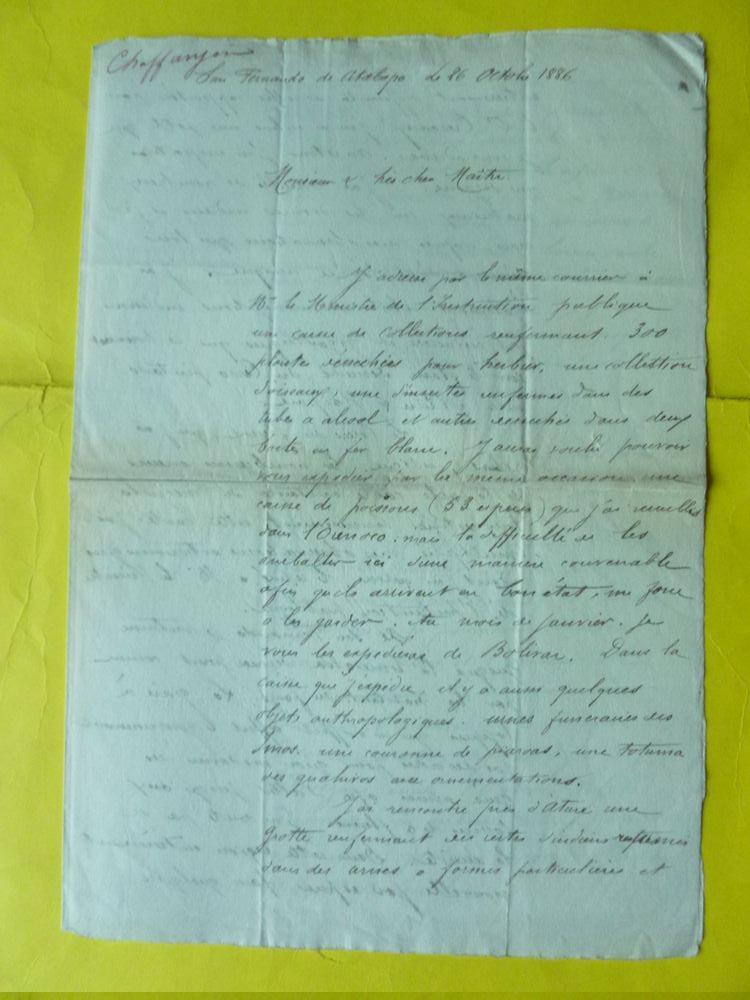 Chaffanjon
San Fernando de Atabapo le 26 Octobre 1886
Monsieur & très cher Maître
J'adresse par le même courrier à
Mr le Ministre de l'Instruction publique
une caisse de collections renfermant 300
plantes séssechées pour herbier, une collection
d'oiseaux, une d'insectes enfermés dans des
tubes à alcool et autres dessechés dans deux
boites en fer blanc. J'aurais voulu pouvoir
vous expedier par la même occasion une
caisse de poissons (53 especes) que j'ai recueillis
dans l'Orénoco. mais la difficulté de les
emballer ici d'une manière convenable
afin quils arrivent en bon état, me force
à les garder. Au mois de janvier. je
vous les expédierai de Bolivar. Dans la
caisse que j'expedie, il y a aussi quelques
objets anthropologiques. urnes funeraires des
une couronne de piaroas, une totuma
des guahivos avec ornementations.
J'ai rencontré près d'Ature une
grotte renfermant des restes d'indiens renfermés
dans des à formes particulières et